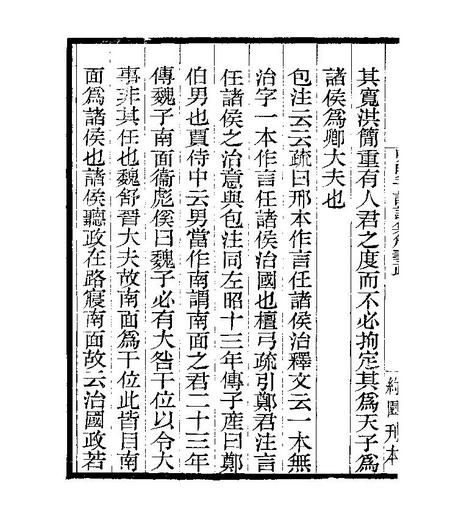 其寬洪簡重有人君之度而不必拘定其為天子為
諸侯為卿大夫也
包注云云疏曰邢本作言任諸侯治釋文云一本無
治字一本作言任諸侯治國也檀弓疏引鄭君注言
任諸侯之治意與包注同左昭十三年傳子產曰鄭
伯男也賈侍中云男當作南謂南面之君二十三年
傳魏子南面衞彪傒曰魏子必有大咎干位以令大
事非其任也魏舒晉大夫故南面為干位此皆目南
面為諸侯也諸侯聽政在路寢南面故云治國政若